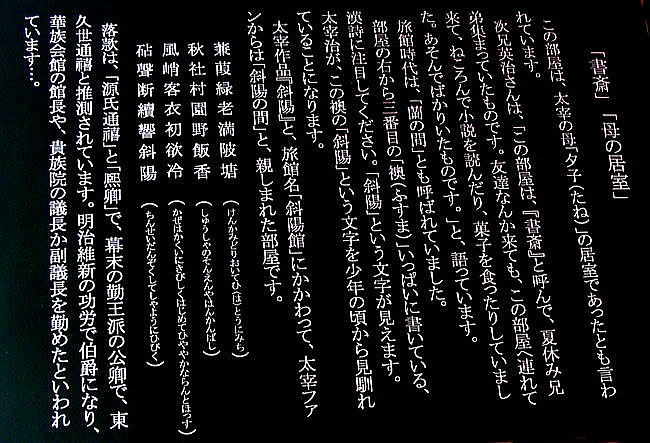 「書斎」「母の居室」
この部屋は、太宰の母「夕子(たね)」の居室であったとも言わ
れています。
次兄英治さんは、「この部屋は、『書斎』と呼んで、夏休み兄
弟集まっていたものです。友達なんか来ても、この部屋へ連れて
来て、ねころんで小説を読んだり、菓子を食ったりしていまし
た。あそんでばかりいたものです。」と、語っています。
旅館時代は、「蘭の間」とも呼ばれていました。
部屋の右から三番目の「襖(ふすま)」いっぱいに書いている、
漢詩に注目してください。「斜陽」という文字が見えます。
太宰治が、この襖の「斜陽」という文字を少年の頃から見馴れ
ていることになります。
太宰作品『斜陽』と、旅館名「斜陽館」にかかわって、太宰ファ
ンからは「斜陽の間」と、親しまれた部屋です。
葭緑老満陂塘(けんかみどりおいてひ(は)とうにみち)
秋社村園野飯香(しゅうしゃのそんえんやはんかんばし)
風峭客衣初欲冷(かぜはかくいにきびしくはじめてひややかならんとほっす)
砧聲断續響斜陽(ちんせいだんぞくしてしゃようにひびく)
落款は、「源氏通禧」と「煕卿」で、幕末の勤王派の公卿で、東
久世通禧と推測されています。明治維新の功労で伯爵になり、
華族会館の館長や、貴族院の議長か副議長を勤めたといわれ
ています…。